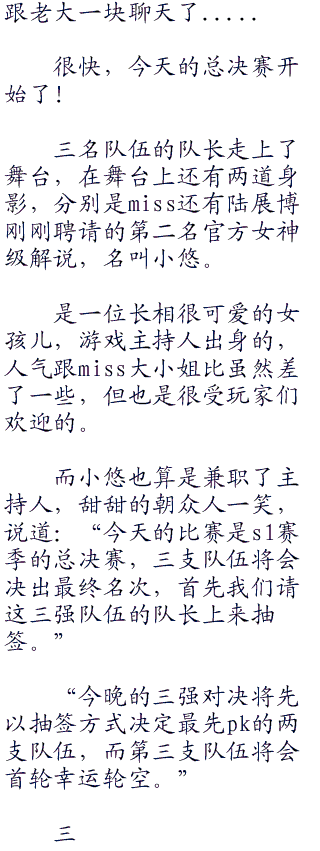 跟老大一块聊天了.....
很快，今天的总决赛开
始了！
三名队伍的队长走上了
舞台，在舞台上还有两道身
影，分别是miss还有陆展博
刚刚聘请的第二名官方女神
级解说，名叫小悠。
是一位长相很可爱的女
孩儿，游戏主持人出身的，
人气跟miss大小姐比虽然差
了一些，但也是很受玩家们
欢迎的。
而小悠也算是兼职了主
持人，甜甜的朝众人一笑，
说道：“今天的比赛是s1赛
季的总决赛，三支队伍将会
决出最终名次，首先我们请
这三强队伍的队长上来抽
签。”
“今晚的三强对决将先
以抽签方式决定最先pk的两
支队伍，而第三支队伍将会
首轮幸运轮空。”
三